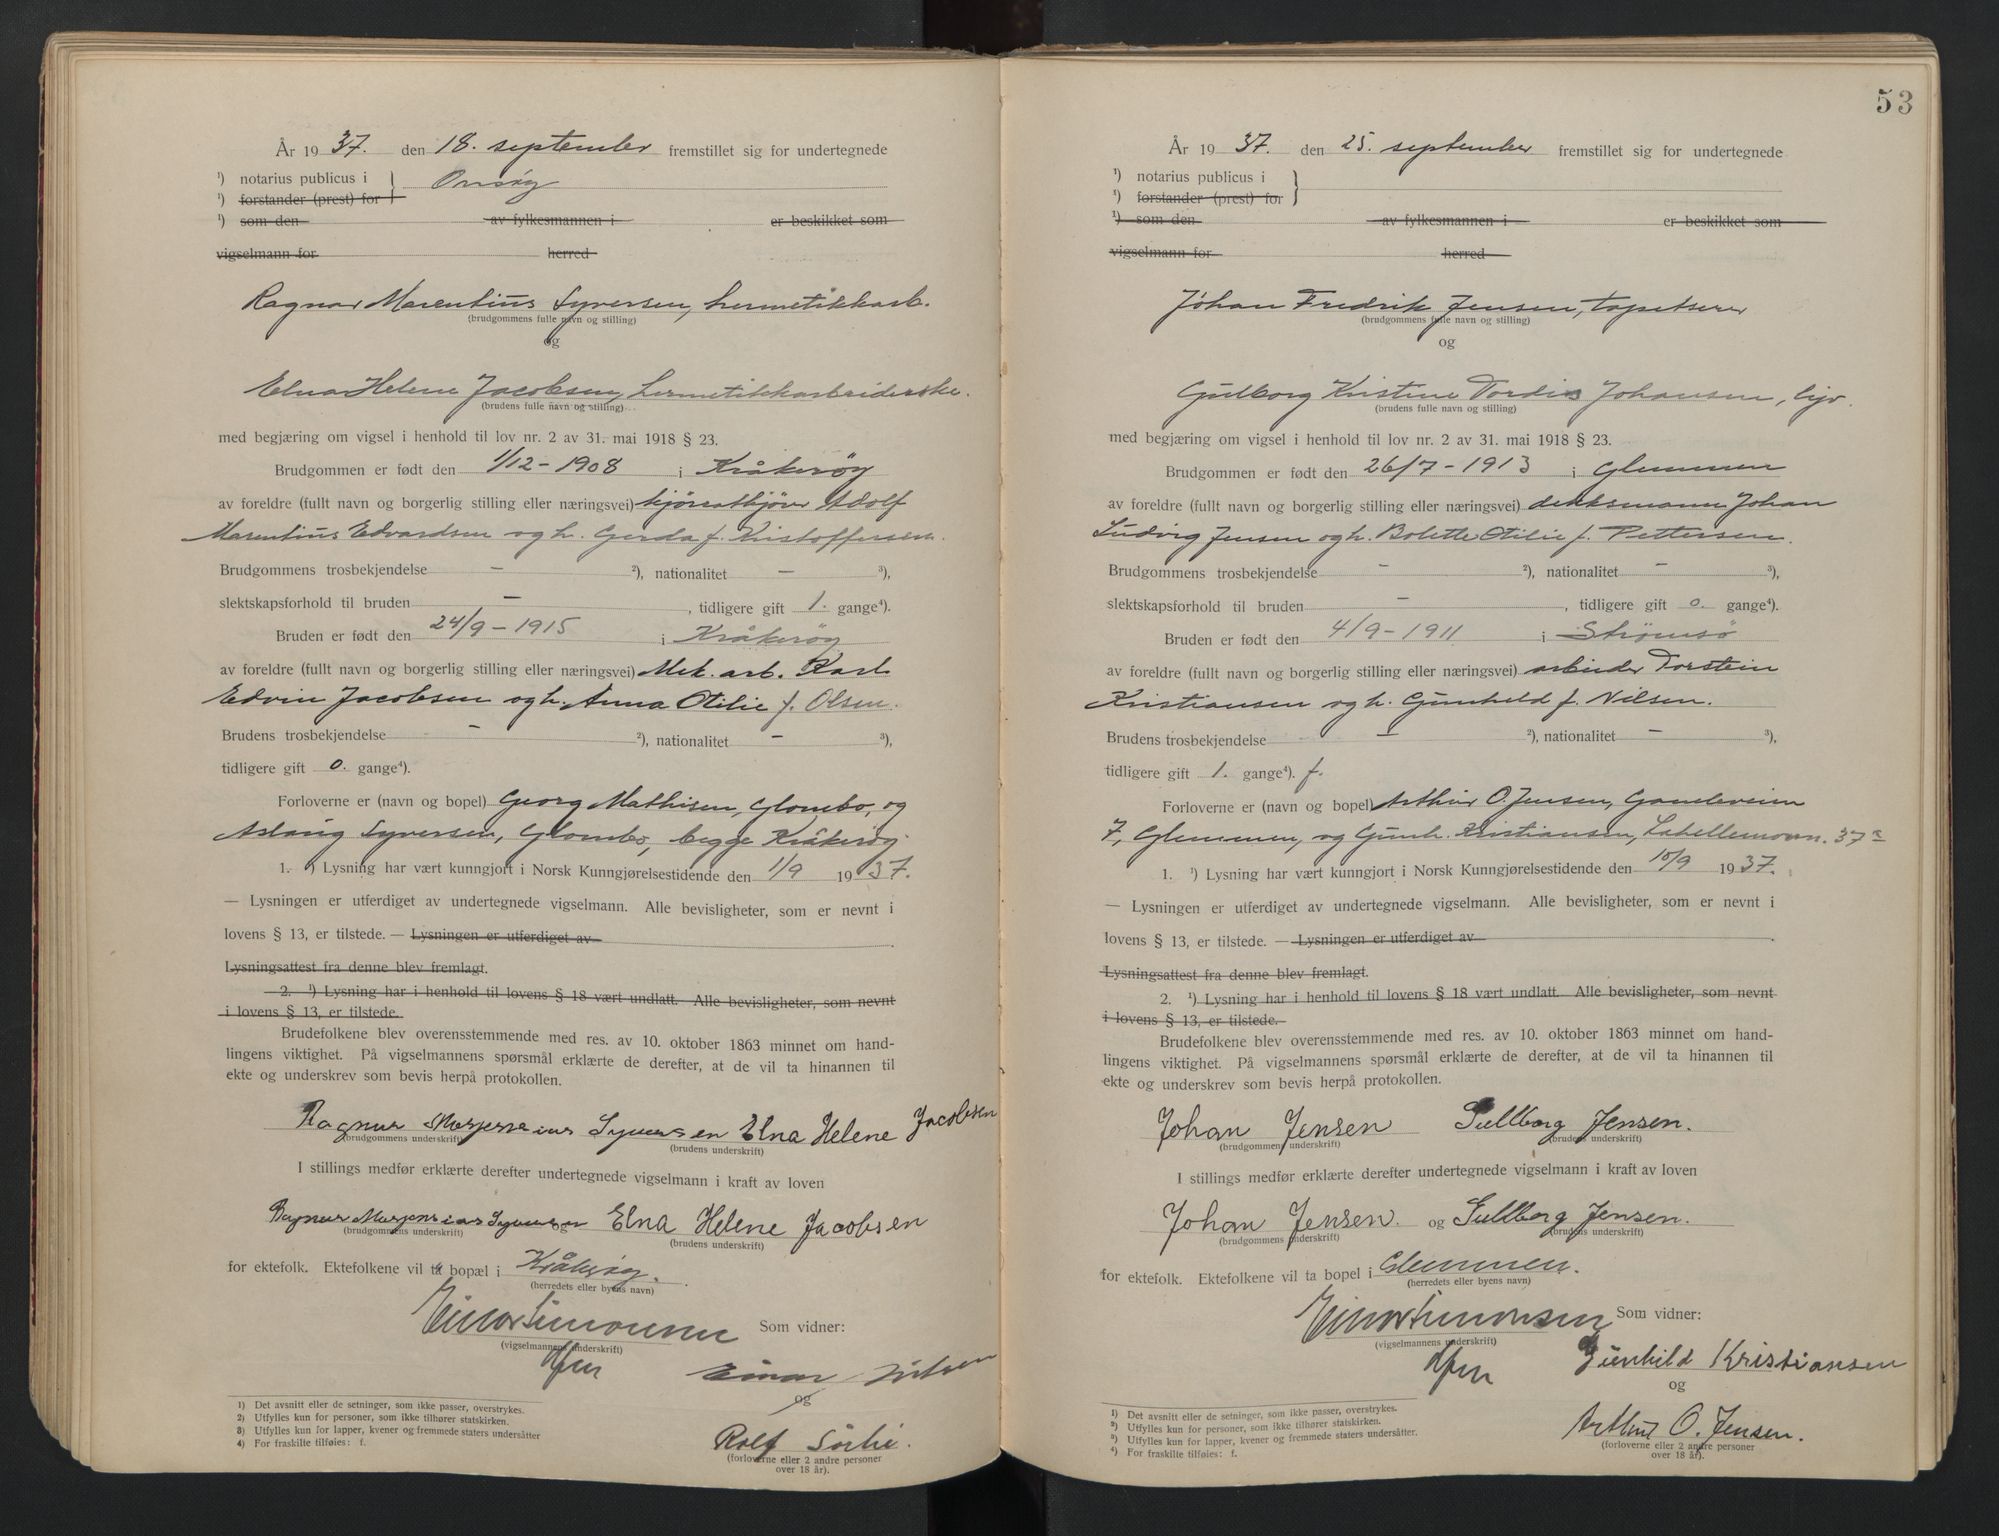 År 1937. den 18. september fremstillet sig for undertegnede
¹) notarius publicus i } Onsøy
¹) forstander (prest) for
¹) som den av fylkesmannen i er beskikket som
vigselmann for herred
Ragnar Marentius Syversen, hermetikkarb.
(brudgommens fulle navn og stilling)
og
Elna Helene Jacobsen, hermetikkarbeiderske.
(brudens fulle navn og stilling)
med begjæring om vigsel i henhold til lov nr. 2 av 31. mai 1918 § 23.
Brudgommen er født den 1/12-1908 i Kråkerøy
av foreldre (fullt navn og borgerlig stilling eller næringsvei) Adolf
Marentius Edvardsen og h. Gerda f. Kristoffersen.
Brudgommens trosbekjendelse - ²), nationalitet - ³),
slektskapsforhold til bruden -, tidligere gift 1. gange⁴).
Bruden er født den 24/9-1915 i Kråkerøy
av foreldre (fullt navn og borgerlig stilling eller næringsvei) Mek. arb. Karl
Edvin Jacobsen og h. Anna Otilie f. Olsen.
Brudens trosbekjendelse - ²), nationalitet - ³),
tidligere gift 0. gange⁴).
Forloverne er (navn og bopel) Georg Mathisen, Glombo, og
Aslaug Syversen, Glombo, begge Kråkerøy
1. ¹) Lysning har vært kunngjort i Norsk Kunngjørelsestidende den 1/9 1937.
— Lysningen er utferdiget av undertegnede vigselmann. Alle bevisligheter, som er nevnt i
lovens § 13, er tilstede. — Lysningen er utferdiget av .
Lysningsattest fra denne blev fremlagt.
2. ¹) Lysning har i henhold til lovens § 18 vært undlatt. Alle bevisligheter, som nevnt
i lovens § 13, er tilstede.
Brudefolkene blev overensstemmende med res. av 10. oktober 1863 minnet om hand-
lingens viktighet. På vigselmannens spørsmål erklærte de derefter, at de vil ta hinannen til
ekte og underskrev som bevis herpå protokollen.
Ragnar Syversen Elna Helene Jacobsen
(brudgommens underskrift) (brudens underskrift)
I stillings medfør erklærte derefter undertegnede vigselmann i kraft av loven
Ragnar Syversen og Elna Helene Jacobsen
(brudgommens underskrift) (brudens underskrift)
for ektefolk. Ektefolkene vil ta bopæl i Kråkerøy.
(herredets eller byens navn)
Einar Simonsen Som vidner:
(vigselmannens underskrift)
Einar
og
Rolf Sørlie.
(forloverne eller 2 andre personer
over 18 år).
1) Det avsnitt eller de setninger, som ikke passer, overstrykes.
2) Utfylles kun for personer, som ikke tilhører statskirken.
3) Utfylles kun for lapper, kvener og fremmede staters undersåtter
4) For fraskilte tilføies: f.
53
År 1937. den 25. september fremstillet sig for undertegnede
¹) notarius publicus i }
¹) forstander (prest) for
¹) som den av fylkesmannen i er beskikket som
vigselmann for herred
Johan Fredrik Jensen, tapetserer
(brudgommens fulle navn og stilling)
og
Gulborg Kristine Tordis Johansen, hjv.
(brudens fulle navn og stilling)
med begjæring om vigsel i henhold til lov nr. 2 av 31. mai 1918 § 23.
Brudgommen er født den 26/7-1913 i Glemmen
av foreldre (fullt navn og borgerlig stilling eller næringsvei) dekksmann Johan
Ludvig Jensen og h. Bolette Otilie f. Pettersen.
Brudgommens trosbekjendelse - ²), nationalitet - ³),
slektskapsforhold til bruden -, tidligere gift 0. gange⁴).
Bruden er født den 4/9-1911 i Strømsø
av foreldre (fullt navn og borgerlig stilling eller næringsvei) arbeider Torstein
Kristiansen og h. Gunhild f. Nilsen.
Brudens trosbekjendelse - ²), nationalitet - ³),
tidligere gift 1. gange⁴). f.
Forloverne er (navn og bopel) Arthur O. Jensen, Gamleveien
7, Glemmen, og Gunh. Kristiansen, 37a
1. ¹) Lysning har vært kunngjort i Norsk Kunngjørelsestidende den 10/9 1937.
— Lysningen er utferdiget av undertegnede vigselmann. Alle bevisligheter, som er nevnt i
lovens § 13, er tilstede. — Lysningen er utferdiget av .
Lysningsattest fra denne blev fremlagt.
2. ¹) Lysning har i henhold til lovens § 18 vært undlatt. Alle bevisligheter, som nevnt
i lovens § 13, er tilstede.
Brudefolkene blev overensstemmende med res. av 10. oktober 1863 minnet om hand-
lingens viktighet. På vigselmannens spørsmål erklærte de derefter, at de vil ta hinannen til
ekte og underskrev som bevis herpå protokollen.
Johan Jensen Gullborg Jensen.
(brudgommens underskrift) (brudens underskrift)
I stillings medfør erklærte derefter undertegnede vigselmann i kraft av loven
Johan Jensen. og Gullborg Jensen.
(brudgommens underskrift) (brudens underskrift)
for ektefolk. Ektefolkene vil ta bopel i Glemmen.
(herredets eller byens navn)
Einar Simonsen Som vidner:
(vigselmannens underskrift)
Gunhild Kristiansen
og
Arthur O. Jensen.
(forloverne eller 2 andre personer
over 18 år).
1) Det avsnitt eller de setninger, som ikke passer, overstrykes.
2) Utfylles kun for personer, som ikke tilhører statskirken.
3) Utfylles kun for lapper, kvener og fremmede staters undersåtter.
4) For fraskilte tilføies: f.